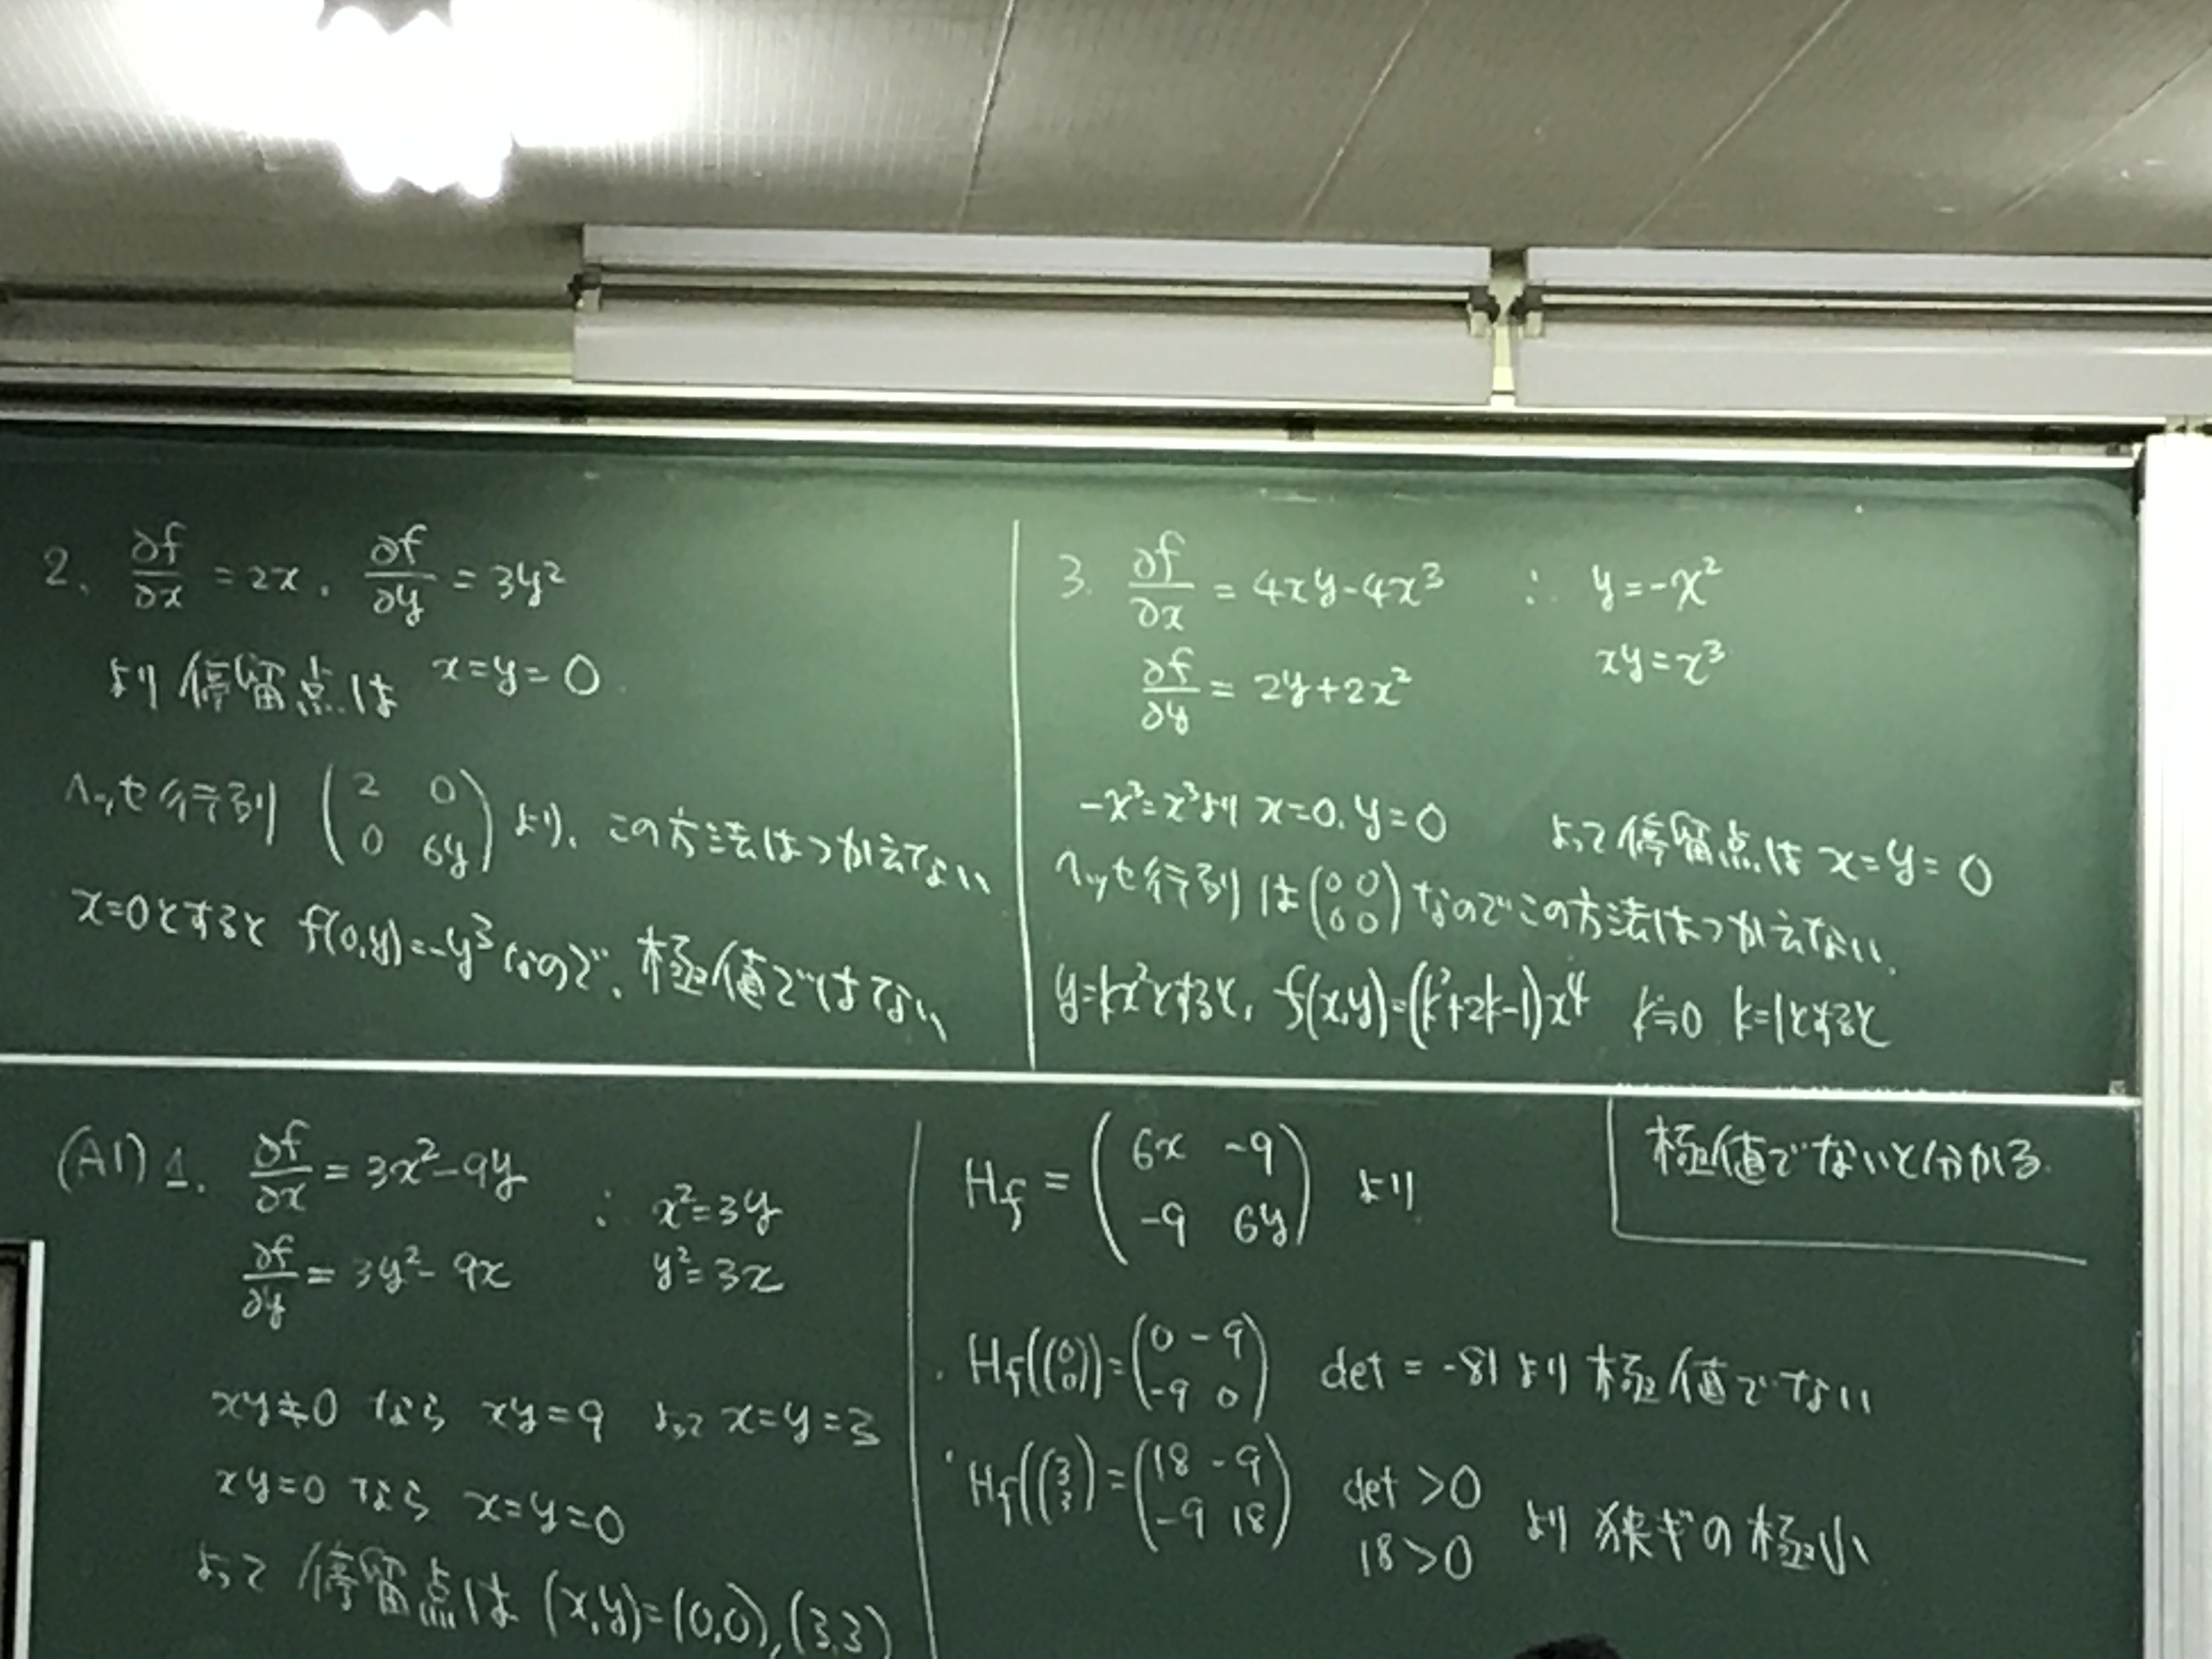 2. ∂f/∂x = 2x. ∂f/∂y = 3y²
より 停留点は x=y=0.
ヘッセ行列 (2 0
0 6y) より、この方法はつかえない
x=0とすると f(0,y)=-y³なので、極値ではない
3. ∂f/∂x = 4xy-4x³ ∴ y=-x²
∂f/∂y = 2y+2x² xy=x³
-x³=x³より x=0. y=0 よって停留点は x=y=0
ヘッセ行列は (0 0
0 0) なのでこの方法はつかえない.
y=kx²とすると, f(x,y)=(k²+2k-1)x⁴ k=0 k=1とすると
極値でないと分かる.
(A1) 1. ∂f/∂x = 3x²-9y ∴ x²=3y
∂f/∂y = 3y²-9x y²=3x
xy≠0 なら xy=9 よって x=y=3
xy=0 なら x=y=0
よって 停留点は (x,y)=(0,0),(3,3)
Hf = (6x -9
-9 6y) より
・Hf((0
0))=(0 -9
-9 0) det = -81 より 極値でない
・Hf((3
3))=(18 -9
-9 18) det >0
18>0 より 狭ギの極小